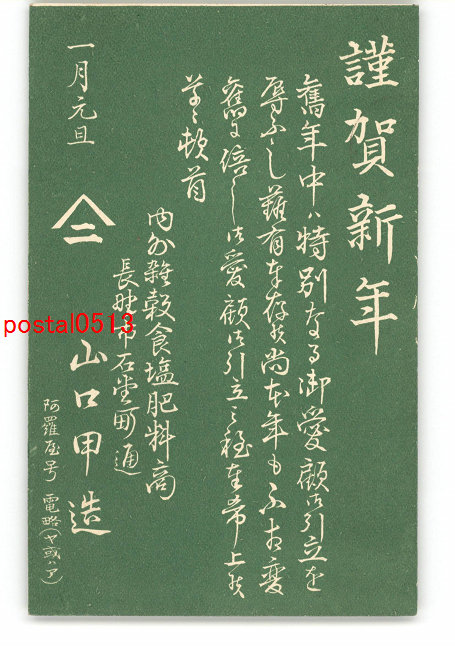 謹賀新年
舊年中ハ特別なる御愛顧御引立を
辱ふし難有奉存候尚本年も不相変
舊に倍し御愛顧御引立之程奉希上候
草々頓首
内外雑穀食塩肥料商
長野市石堂町通
山口甲造
阿羅屋号 電略(ヤ或ハア)
一月元旦
二
postal0513